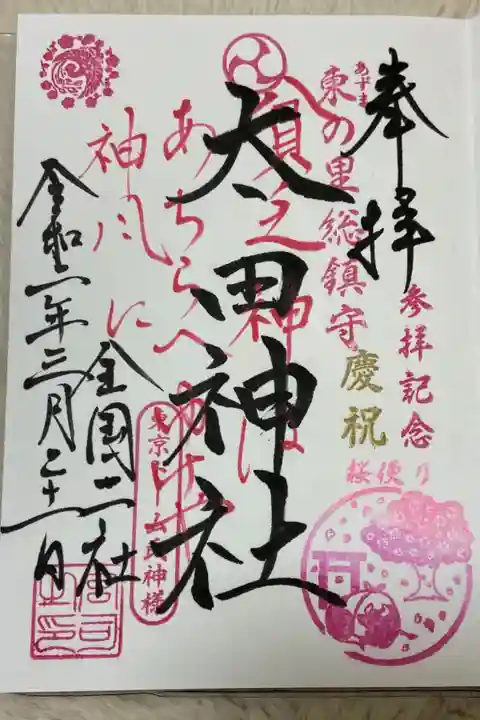 奉拝
あずま
東の里総鎮守
参拝記念
慶祝
桜便り
太田神社
神は
あちらへ
神風に
全国二社
東京
神様
令和二年三月二十一日